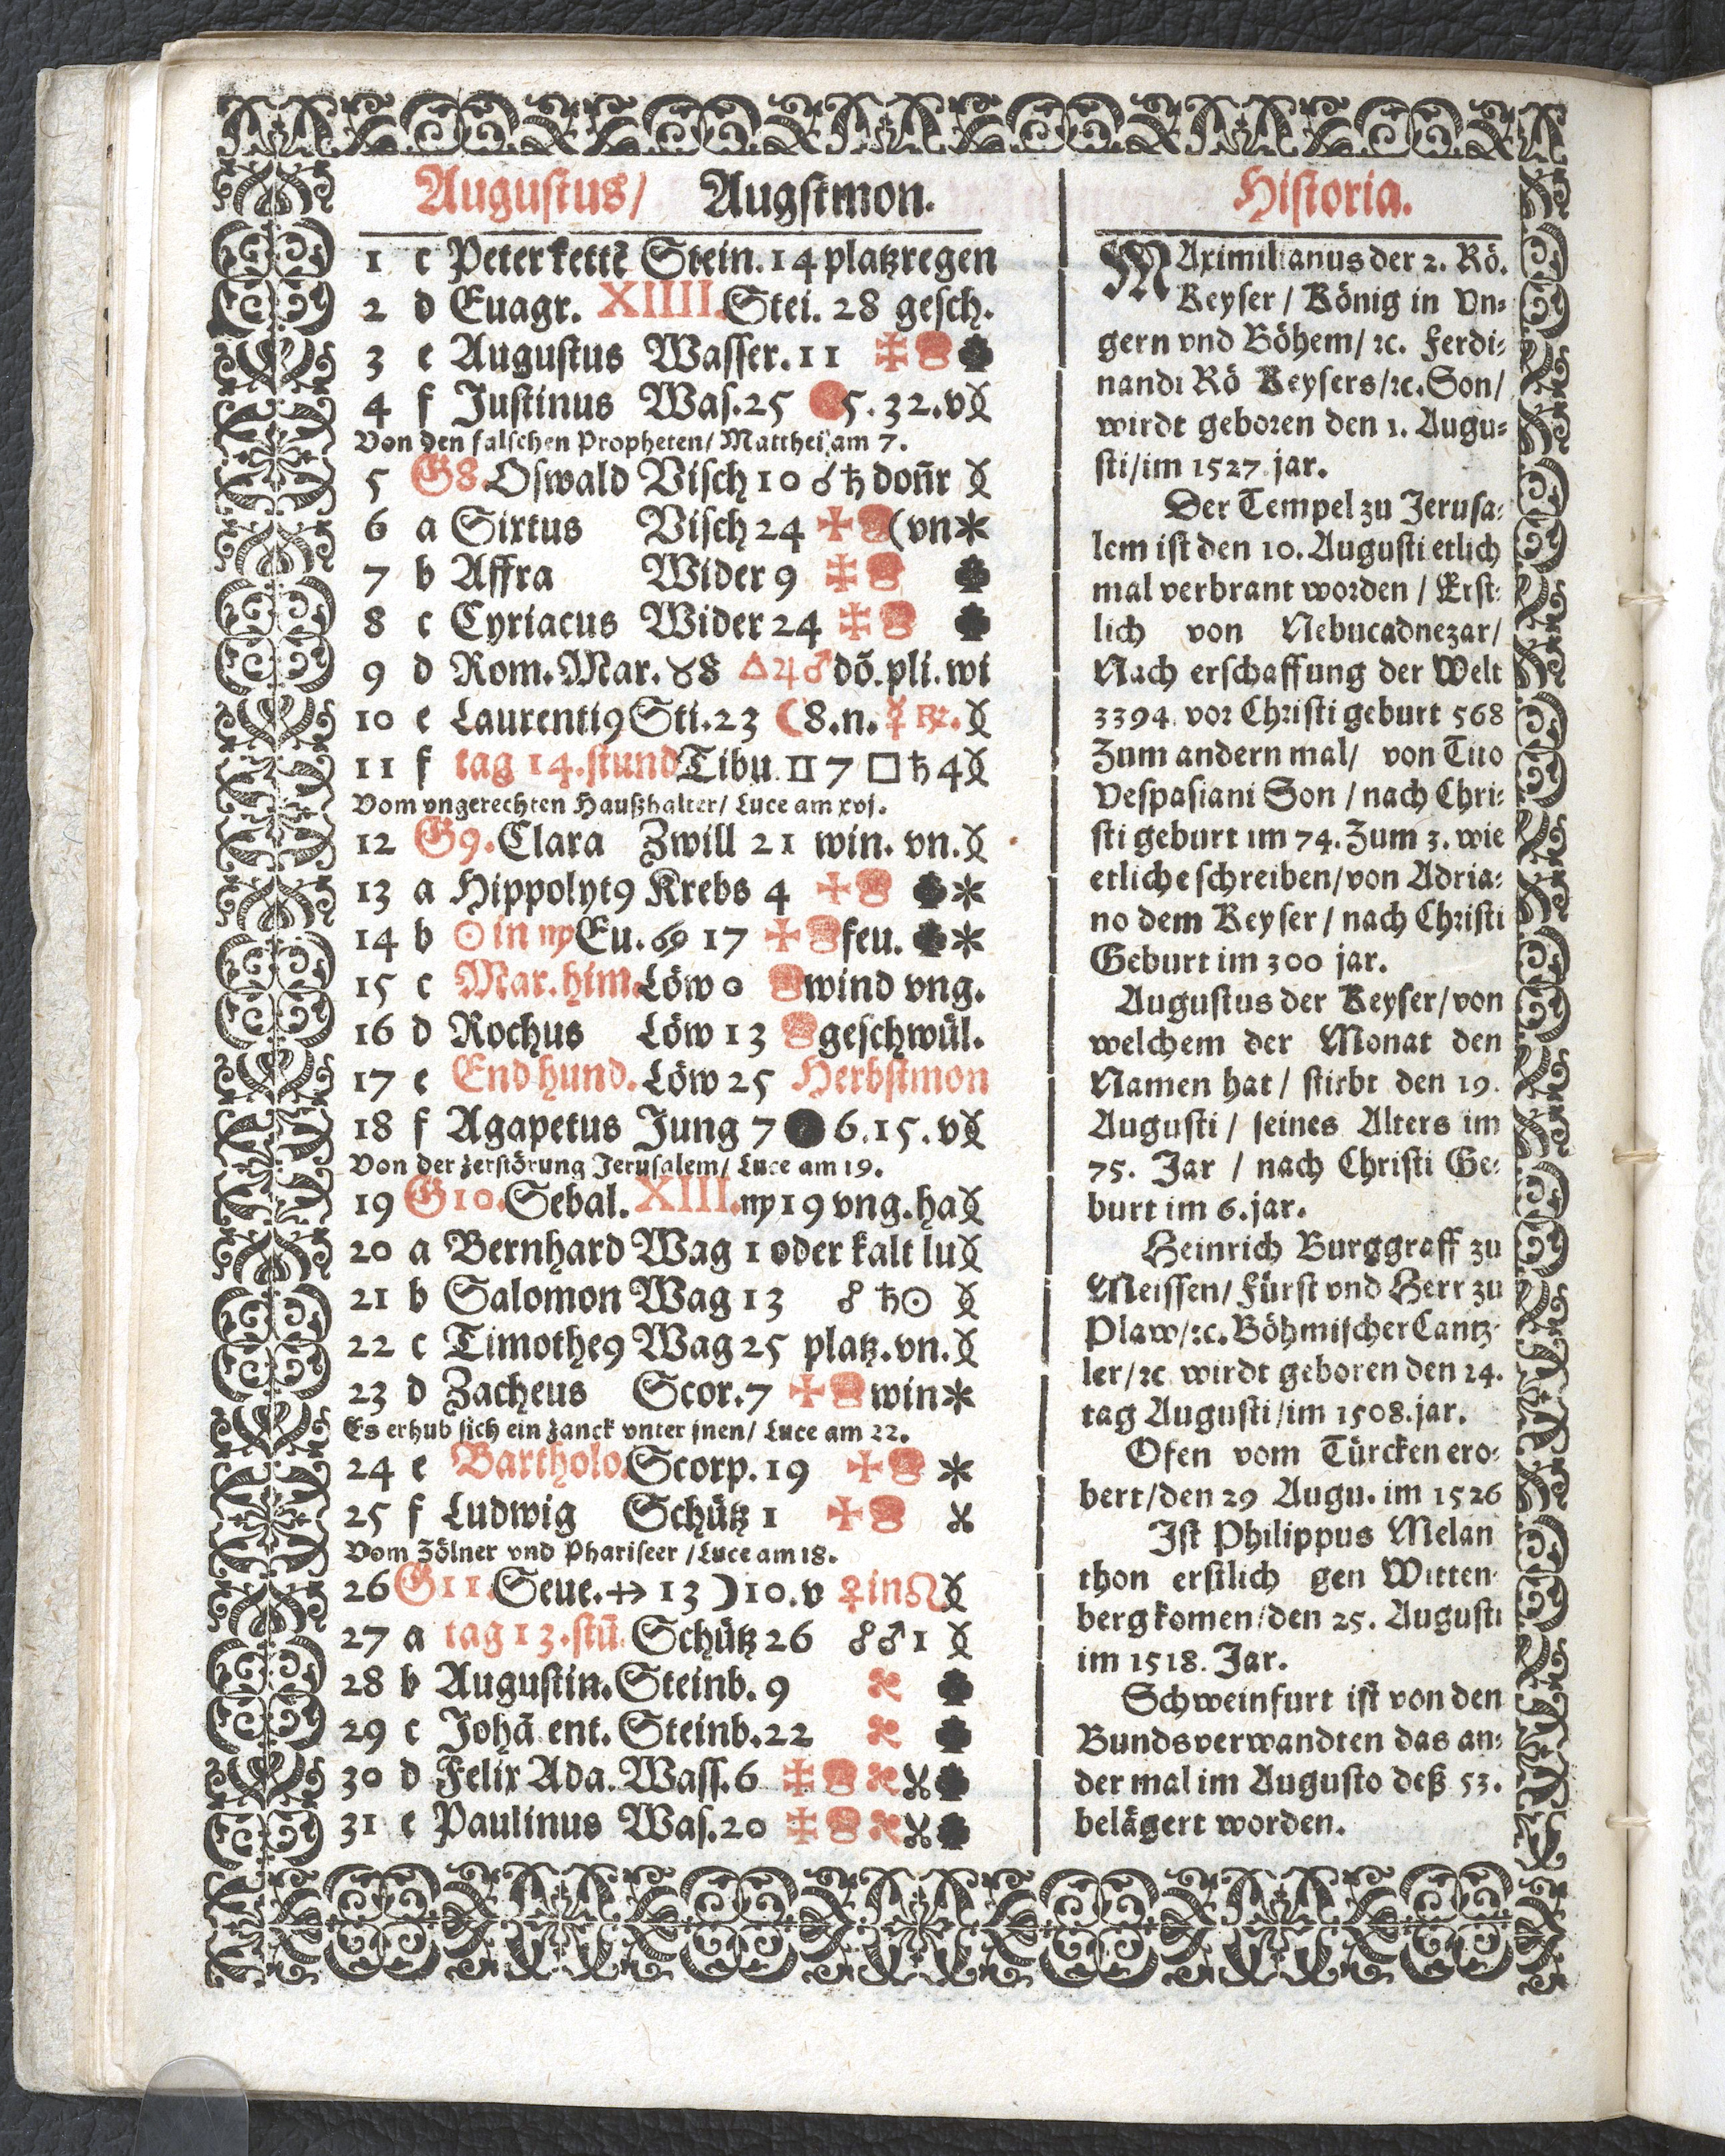 Augustus/ Augstmon.
1 c Peter kettẽ Stein. 14 platzregen
2 d Euagr. XIIII. Stei. 28 gesch.
3 e Augustus Wasser. 11
4 f Justinus Was. 25 5. 32. v
Von den falschen Propheten/ Matthei am 7.
5 G8. Oswald Visch 10 ☌ ♄ don̄r
6 a Sixtus Visch 24 (vn
7 b Affra Wider 9
8 c Cyriacus Wider 24
9 d Rom. Mar. ♉ 8 △ ♃ ♂ dõ. pli. wi
10 e Laurenti9 Sti. 23 ☾ 8. n. ☿ ℞.
11 f tag 14. stund Tibu. ♊ 7 □ ♄ 4
Vom vngerechten Haußhalter/ Luce am xvj.
12 G9. Clara Zwill 21 win. vn.
13 a Hippolyt9 Krebs 4
14 b ☉ in ♍ Eu. ♋ 17 feu.
15 c Mar. him. Löw 0 wind vng.
16 d Rochus Löw 13 geschwül.
17 e End hund. Löw 25 Herbstmon
18 f Agapetus Jung 7 6. 15. v
Von der zerstörung Jerusalem/ Luce am 19.
19 G10. Sebal. XIII. ♍ 19 vng. ha
20 a Bernhard Wag 1 oder kalt lu
21 b Salomon Wag 13 ☍ ♄ ☉
22 c Timothe9 Wag 25 platz. vn.
23 d Zacheus Scor. 7 win
Es erhub sich ein zanck vnter jnen/ Luce am 22.
24 e Bartholo. Scorp. 19
25 f Ludwig Schütz 1
Vom Zölner vnd Phariseer / Luce am 18.
26 G11. Seue. ♐ 13 ☽ 10. v ♀ in ♌
27 a tag 13. stū. Schütz 26 ☍ ♂ 1
28 b Augustin. Steinb. 9
29 c Johā ent. Steinb. 22
30 d Felix Ada. Wass. 6
31 e Paulinus Was. 20
Historia.
MAximilianus der 2. Rö.
Keyser / König in Vn⸗
gern vnd Böhem/ ꝛc. Ferdi⸗
nandi Rö Keysers/ꝛc. Son/
wirdt geboren den 1. Augu⸗
sti/im 1527 jar.
Der Tempel zu Jerusa⸗
lem ist den 10. Augusti etlich
mal verbrant worden / Erst⸗
lich von Nebucadnezar/
Nach erschaffung der Welt
3394. vor Christi geburt 568
Zum andern mal/ von Tito
Vespasiani Son / nach Chri⸗
sti geburt im 74. Zum 3. wie
etliche schreiben/von Adria⸗
no dem Keyser / nach Christi
Geburt im 300 jar.
Augustus der Keyser/von
welchem der Monat den
Namen hat / stirbt den 19.
Augusti / seines Alters im
75. Jar / nach Christi Ge⸗
burt im 6. jar.
Heinrich Burggraff zu
Meissen/ Fürst vnd Herr zu
Plaw/ꝛc. Böhmischer Cantz⸗
ler/ꝛc wirdt geboren den 24.
tag Augusti/im 1508. jar.
Ofen vom Türcken ero⸗
bert/den 29 Augu. im 1526
Ist Philippus Melan
thon erstlich gen Witten⸗
berg komen/den 25. Augusti
im 1518. Jar.
Schweinfurt ist von den
Bundsverwandten das an⸗
der mal im Augusto deß 53.
belägert worden.